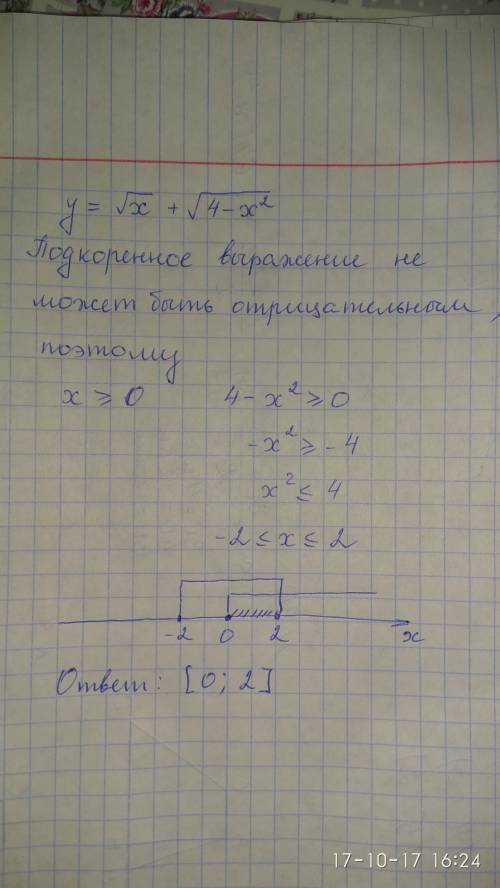 y = √x + √4-x²
Подкоренное выражение не
может быть отрицательным,
поэтому
x ⩾ 0 4-x² ⩾ 0
-x² ⩾ -4
x² ≤ 4
-2 ≤ x ≤ 2
-2 0 2 x
Ответ: [0; 2]
17-10-17 16:24